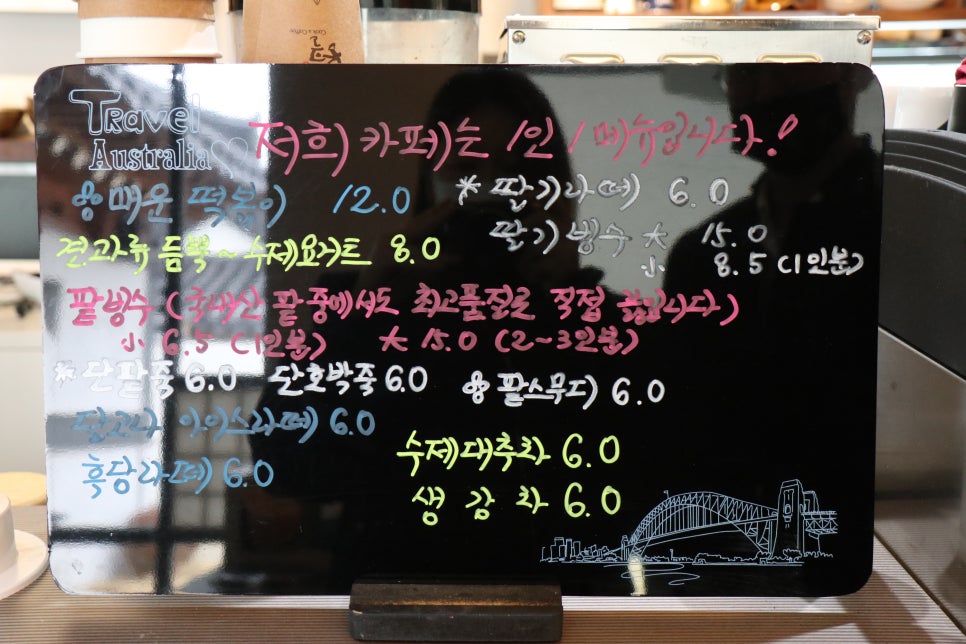 Travel
Australia
저희 카페는 1인 1메뉴입니다!
매운 떡볶이 12.0
* 딸기라떼 6.0
딸기빙수 大 15.0
小 8.5 (1인분)
견과류 듬뿍~수제요거트 8.0
팥빙수 (국내산 팥 중에서도 최고품질로 직접 끓입니다)
小 6.5 (1인분) 大 15.0 (2~3인분)
*단팥죽 6.0 단호박죽 6.0
팥스무디 6.0
달고나 아이스라떼 6.0
흑당라떼 6.0
수제대추차 6.0
생강차 6.0